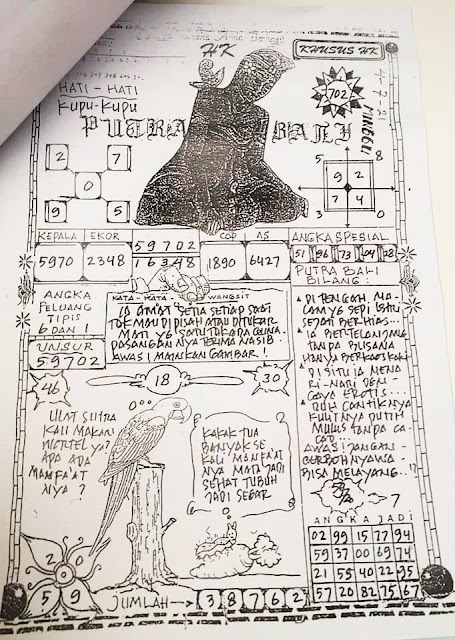 HK
KHUSUS HK
HATI - HATI
KUPU-KUPU
702
4-7-21
MINGGU
PUTRA BALI
2 7
0
9 5
5 8
9 2
7 4
3 0
KEPALA EKOR
5970 2348
59702
16348
COP AS
1890 6427
ANGKA SPESIAL
51 96 73 04 28
ANGKA
PELUANG
TIPIS
6 DAN 1
UNSUR
59702
KATA - KATA WANGSIT
IA AMAT SETIA SETIAP SAAT
TOK MAU DI PISAH ATAU DITUKAR
MATI YG SATU TOK ADA GUNA
PASANGAN NYA TERIMA NASIB
AWAS! MAINKAN GAMBAR!
PUTRA BALI
BILANG:
DI TENGAH MA-
LAM YG SEPI
SEJATI BERHIAS...
IA BERTELANJANG
TANPA BUSANA
DI SITU IA MENA
RI-NARI DEN-
GAYA EROTIS...
CANTIKNYA
KULITNYA PUTIH
MULUS TANPA CA-
CAD...
AWAS JANGAN
BISA MELAYANG..!!
46
18
30
ULAT SUTRA
KALI MAKAN
APA ADA
MANFA'AT
NYA ?
KAKAK TUA
BANYAK SE
KALI MANFA'AT
NYA MATA JADI
SEHAT TUBUH
JADI SEGAR
7
ANGKA JADI
02 99 15 77 94
59 37 00 69 74
21 55 40 22 95
57 20 82 75 67
2 0
5 9
JUMLAH → 38762